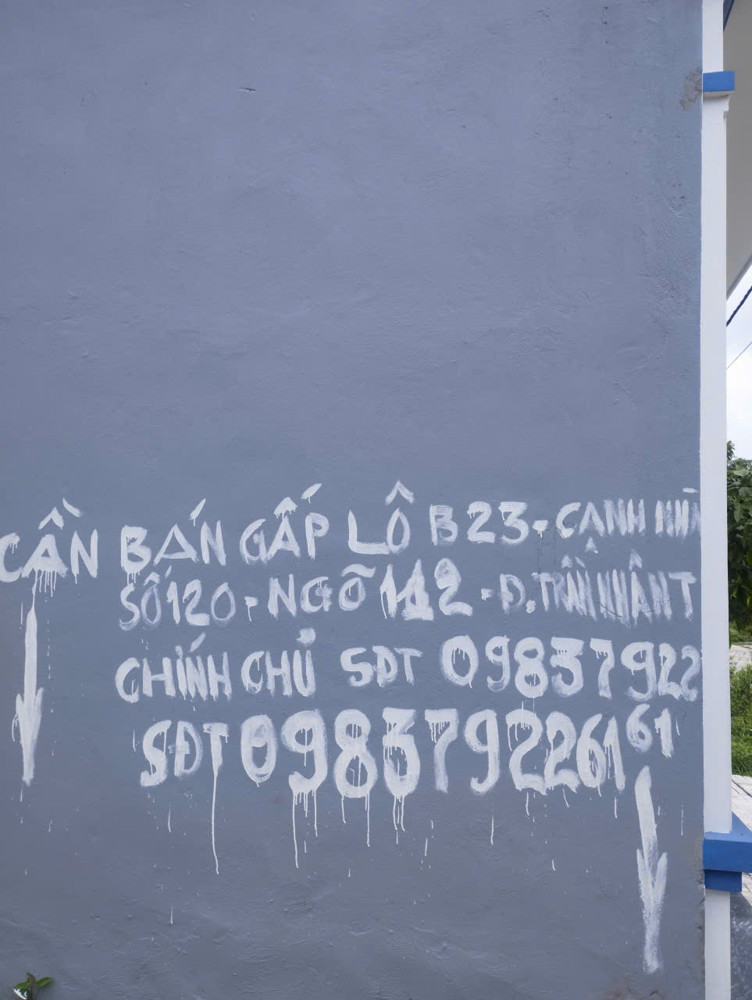 CẦN BÁN GẤP LÔ B23-CẠNH NHÀ
SỐ 120-NGÕ 112-Đ.TRẦN NHÂN T
CHÍNH CHỦ SĐT 0983792261
SĐT 0983792261